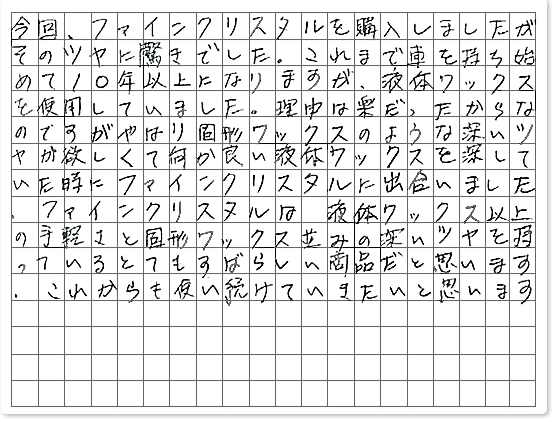 今回、ファインクリスタルを購入しましたが
そのツヤに驚きでした。これまで車を持ち始
めて10年以上になりますが、液体ワックス
を使用していました。理由は楽だったからな
のですがやはり固形ワックスのような深いツ
ヤが欲しくて何か良い液体ワックスを深して
いた時にファインクリスタルに出合いました
.ファインクリスタルは 液体ワックス以上
の手軽さと固形ワックス並みの深いツヤを持
っているとてもすばらしい商品だと思います
.これからも使い続けていきたいと思います